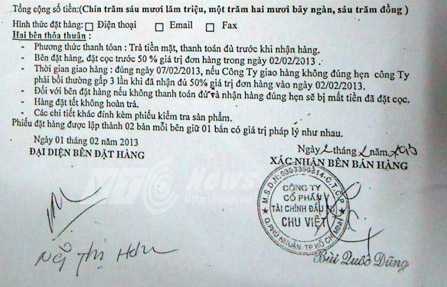 Tổng cộng số tiền:(Chín trăm sáu mươi lăm triệu, một trăm hai mươi bảy ngàn, sáu trăm đồng )
Hình thức đặt hàng: Điện thoại Email Fax
Hai bên thỏa thuân :
- Phương thức thanh tóan : Trả tiền mặt, thanh toán đủ trước khi nhận hàng.
- Bên đặt hàng, đặt cọc trước 50 % giá trị đơn hàng trong ngày 02/02/2013 .
- Thời gian giao hàng : đúng ngày 07/02/2013, nếu Công Ty giao hàng không đúng hẹn công Ty
phải bồi thường gấp 3 lần khi đã nhận đủ 50% giá trị đơn hàng vào ngày 02/02/2013.
- Đối với bên đặt hàng nếu không thanh toán đủ và nhận hàng đúng hẹn sẽ bị mất tiền đã đặt cọc.
- Hàng đặt tết không hoàn trả.
- Các chi tiết khác đính kèm phiếu kiểm tra sản phẩm.
Phiếu đặt hàng được lập thành 02 bản mỗi bên giữ 01 bản có giá trị pháp lý như nhau.
Ngày 01 tháng 02 năm 2013
Ngày 2 tháng 2 năm 2013
ĐẠI DIỆN BÊN ĐẶT HÀNG
XÁC NHẬN BÊN BÁN HÀNG
News
CÔNG TY
CỔ PHẦN
TÀI CHÍNH ĐẦU
CHU VIỆT
Q.PHÚ NHUẬN-TP HỒ CHÍ MINH
Thị
Bùi Quốc Dũng